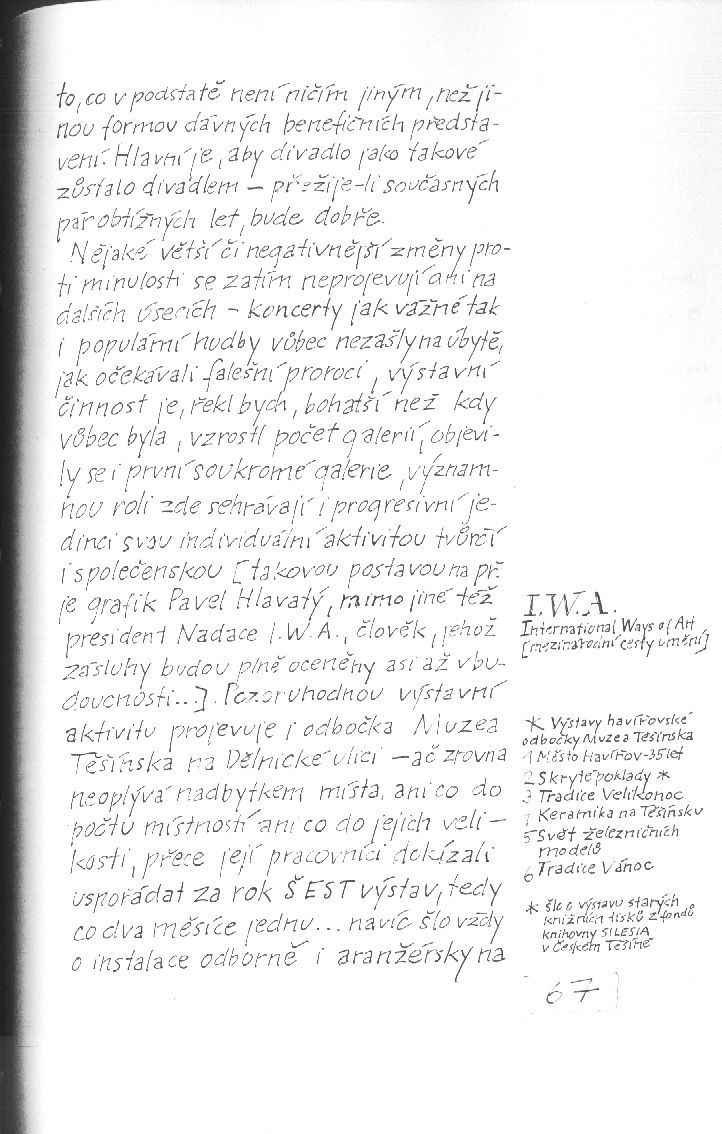 to, co v podstatě není ničím jiným, než ji-
nou formov dávných benefičních předsta-
vení. Hlavní je, aby divadlo jako takové
zůstalo divadlem – přežije-li současných
pár obtížných let, bude dobře.
Nějaké větší či negativnější změny pro-
ti minulosti se zatím neprojevují ani na
dalších úsecích – koncerty jak vážné tak
i populární hudby vůbec nezašly na úbytě,
jak očekávali falešní proroci, výstavní
činnost je, řekl bych, bohatší než kdy
vůbec byla, vzrostl počet galerií, objevi-
ly se i první soukromé galerie, význam-
nou roli zde sehrávají i progresivní je-
dinci svou individuální aktivitou tvůrčí
i společenskou [takovou postavou na př.
je grafik Pavel Hlavatý, mimo jiné též
president Nadace I.W.A., člověk, jehož
zásluhy budou plně oceněny asi až v bu-
doucnosti...]. Pozoruhodnou výstavní
aktivitu projevuje i odbočka Muzea
Těšínska na Dělnické ulici – ač zrovna
neoplývá nadbytkem místa, ani co do
počtu místností ani co do jejich veli-
kosti, přece její pracovníci dokázali
uspořádat za rok ŠEST výstav, tedy
co dva měsíce jednu... navíc šlo vždy
o instalace odborně i aranžérsky na
I.W.A.
International Ways of Art
[mezinárodní cesty umění]
* Výstavy havířovské
odbočky Muzea Těšínska
1 Město Havířov-35 let
2 Skryté poklady *
3 Tradice Velikonoc
4 Keramika na Těšínsku
5 Svět železničních
modelů
6 Tradice Vánoc
* šlo o výstavu starých
knižních tisků z fondů
knihovny SILESIA
v Českém Těšíně
67